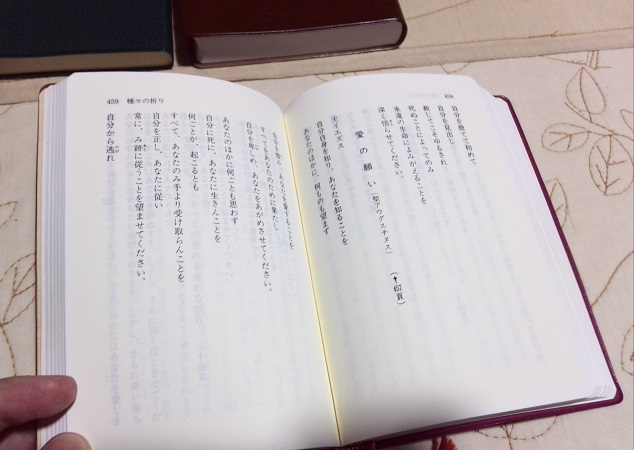 458
自分を捨てて初めて、
自分を見出し
赦してこそゆるされ
死ぬことによってのみ
永遠の生命によみがえることを
深く悟らせてください。
愛の願い(聖アウグスチヌス) (↑457頁)
主イエズス
自分自身を知り、あなたを知ることを
あなたのほかに、何ものも望まず
459 種々の祈り
自分を憎み、あなたを愛することを
すべてをあなたのために果たし
自分を卑しめ、あなたをあがめさせてください。
あなたのほかに何ごとも思わず
自分に死に、あなたに生きんことを
何ごとが、起こるとも
すべて、あなたのみ手より受け取らんことを
自分を正し、あなたに従い
常に、み跡に従うことを望ませてください。
自分から逃れ